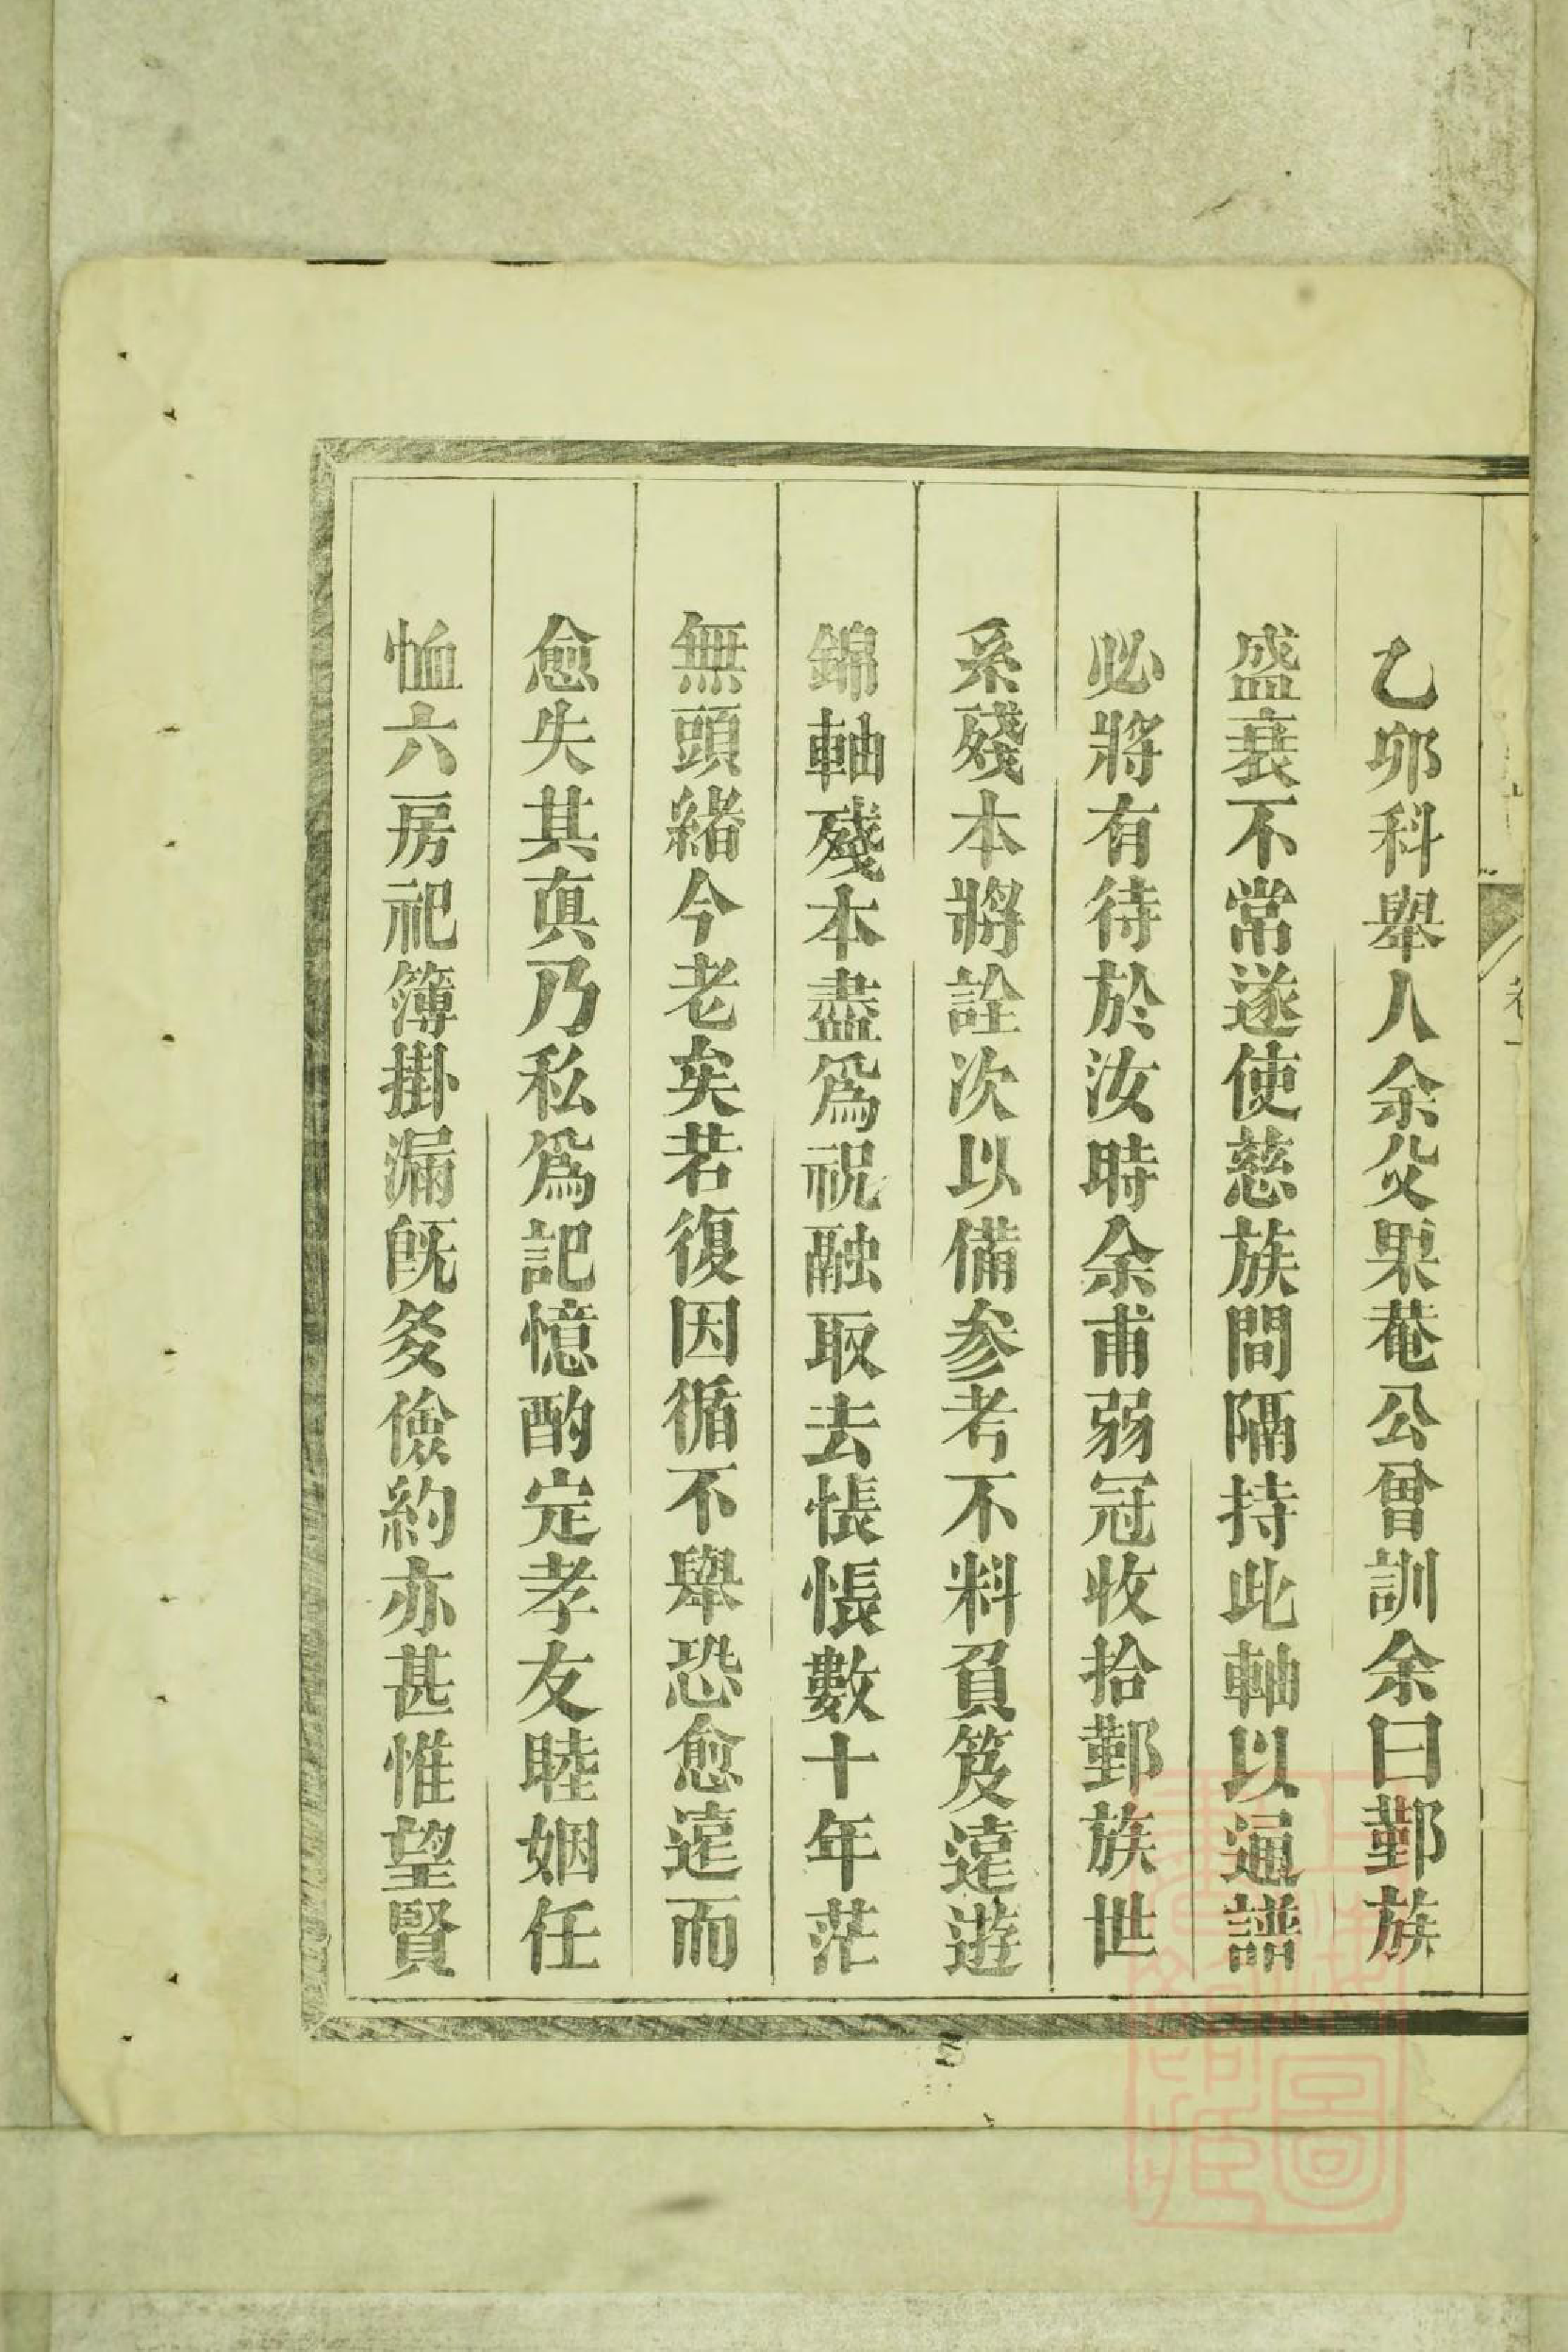 卷一
乙卯科舉人余父果菴公曾訓余曰鄞族
盛衰不常遂使慈族間隔持此軸以通譜
必將有待於汝時余甫弱冠收拾鄞族世
系殘本將詮次以備參考不料負笈遠遊
錦軸殘本盡爲祝融取去悵悵數十年茫
無頭緒今老矣若復因循不舉恐愈遠而
愈失其眞乃私爲記憶酌定孝友睦姻任
恤六房祀簿掛漏旣多儉約亦甚惟望賢